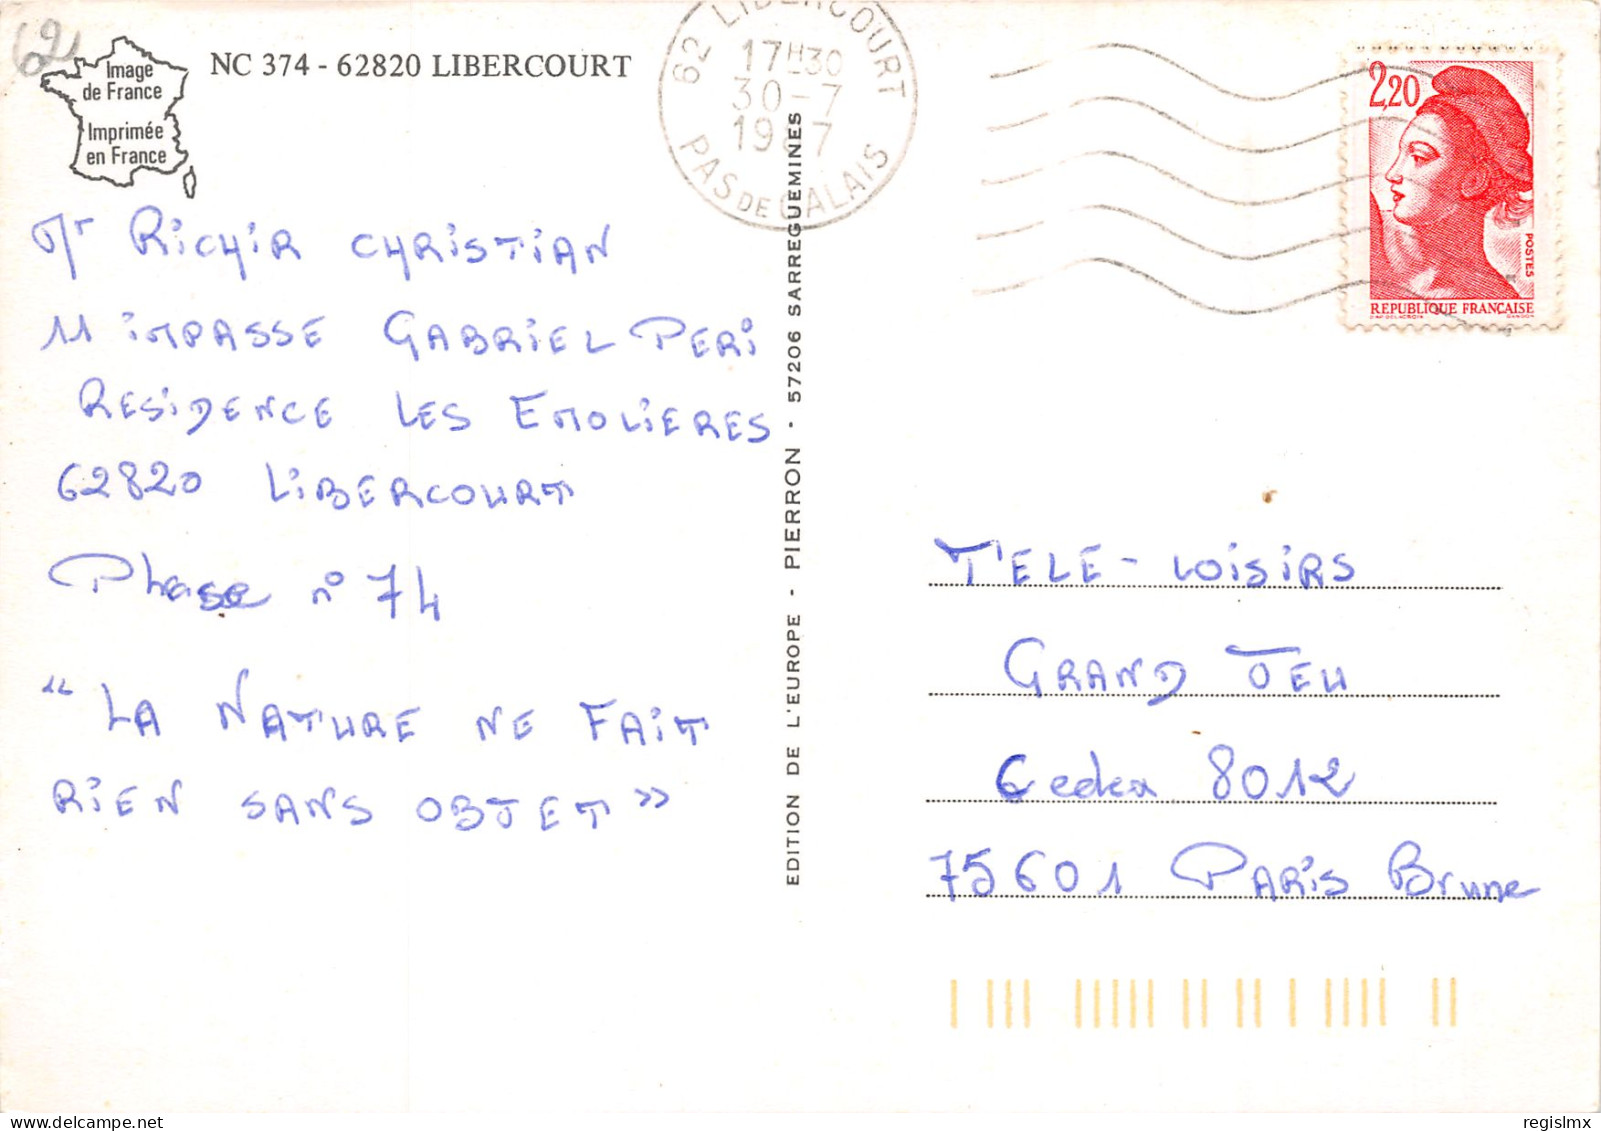 62
Image
de France
Imprimée
en France
NC 374 - 62820 LIBERCOURT
62 LIBERCOURT
17H30
30-7
1987
PAS DE CALAIS
2,20
POSTES
REPUBLIQUE FRANÇAISE
D'AP. DELACROIX GANDON
Mr RICHIR CHRISTIAN
11 IMPASSE GABRIEL PERI
RESIDENCE LES EMOLIERES
62820 LIBERCOURT
Phase n° 74
"LA NATURE NE FAIT
RIEN SANS OBJET»
EDITION DE L'EUROPE - PIERRON - 57206 SARREGUEMINES
TELE-LOISIRS
GRAND JEU
Cedex 8012
75601 PARIS Brune
regislmx